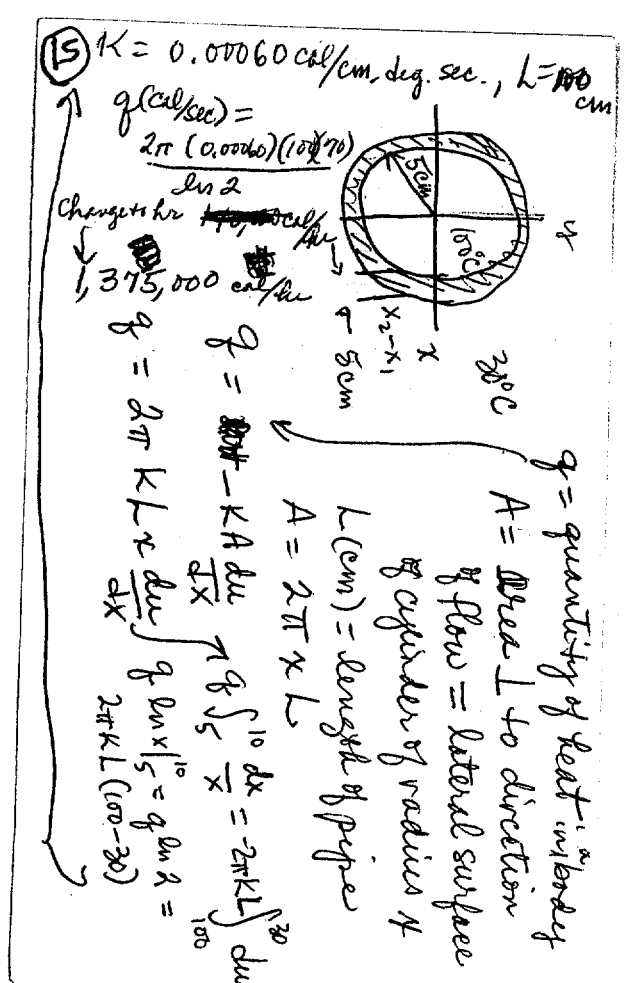 15 K = 0.00060 cal/cm. deg. sec., L = 100 cm
q (cal/sec) =
2π (0.00060)(100)(70)
ln 2
Change to hr
cal/hr
1, 375,000 cal/hr
5cm
100°C
x
x
x₂-x₁
5cm
30°C
q = quantity of heat in body
A = Area ⊥ to direction
of flow = lateral surface
of cylinder of radius x
L (cm) = length of pipe
A = 2π x L
q = - KA du/dx
q ∫₅¹⁰ dx/x = -2πKL ∫₁₀₀³⁰ du
q = 2π K L x du/dx
q ln x |₅¹⁰ = q ln 2 =
2πKL (100-30)